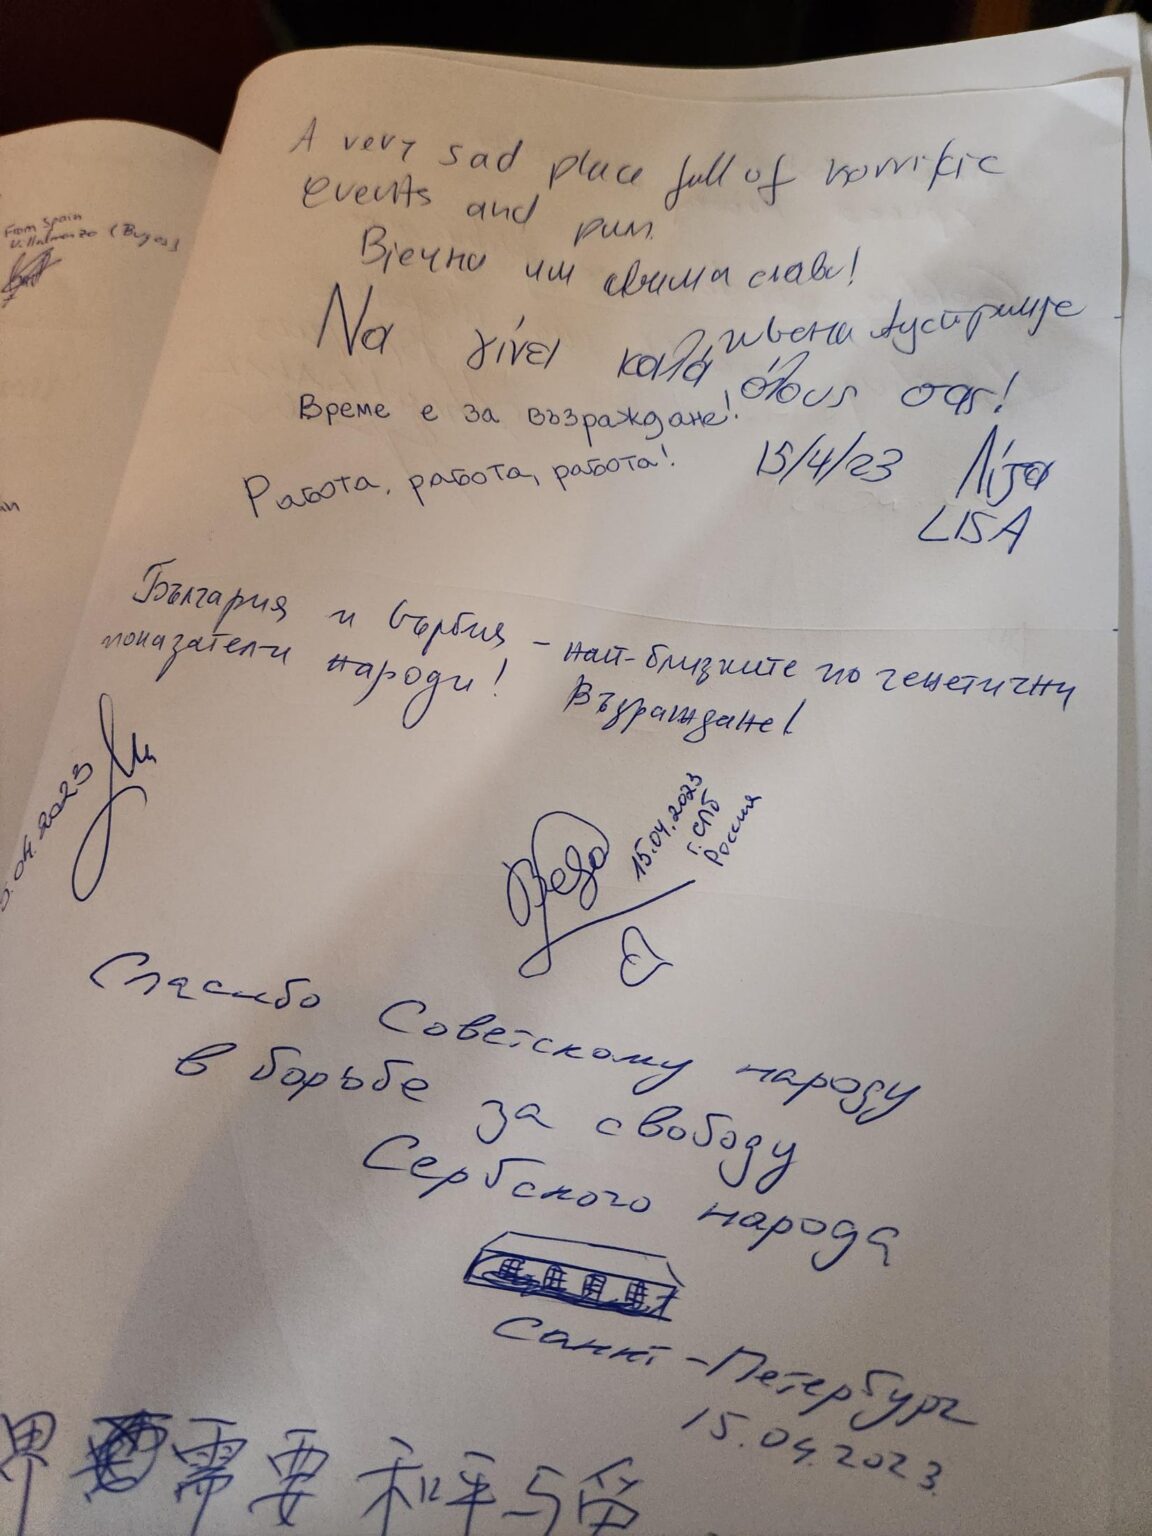 From Spain
A very sad place full of horrific
events and
Вјечна им слава!
Να γίνει καλά όλους σας!
Време е за възраждане!
Работа, работа, работа!
15/4/23 Λίζα
LISA
България и Сърбия - най-близките по генетични
показатели народи! Възраждане!
04.2023
15.04.2023
г. СПб
Россия
Спасибо Советскому народу
в борьбе за свободу
Сербского народа
Санкт-Петербург
15.04.2023
界 需要和平与